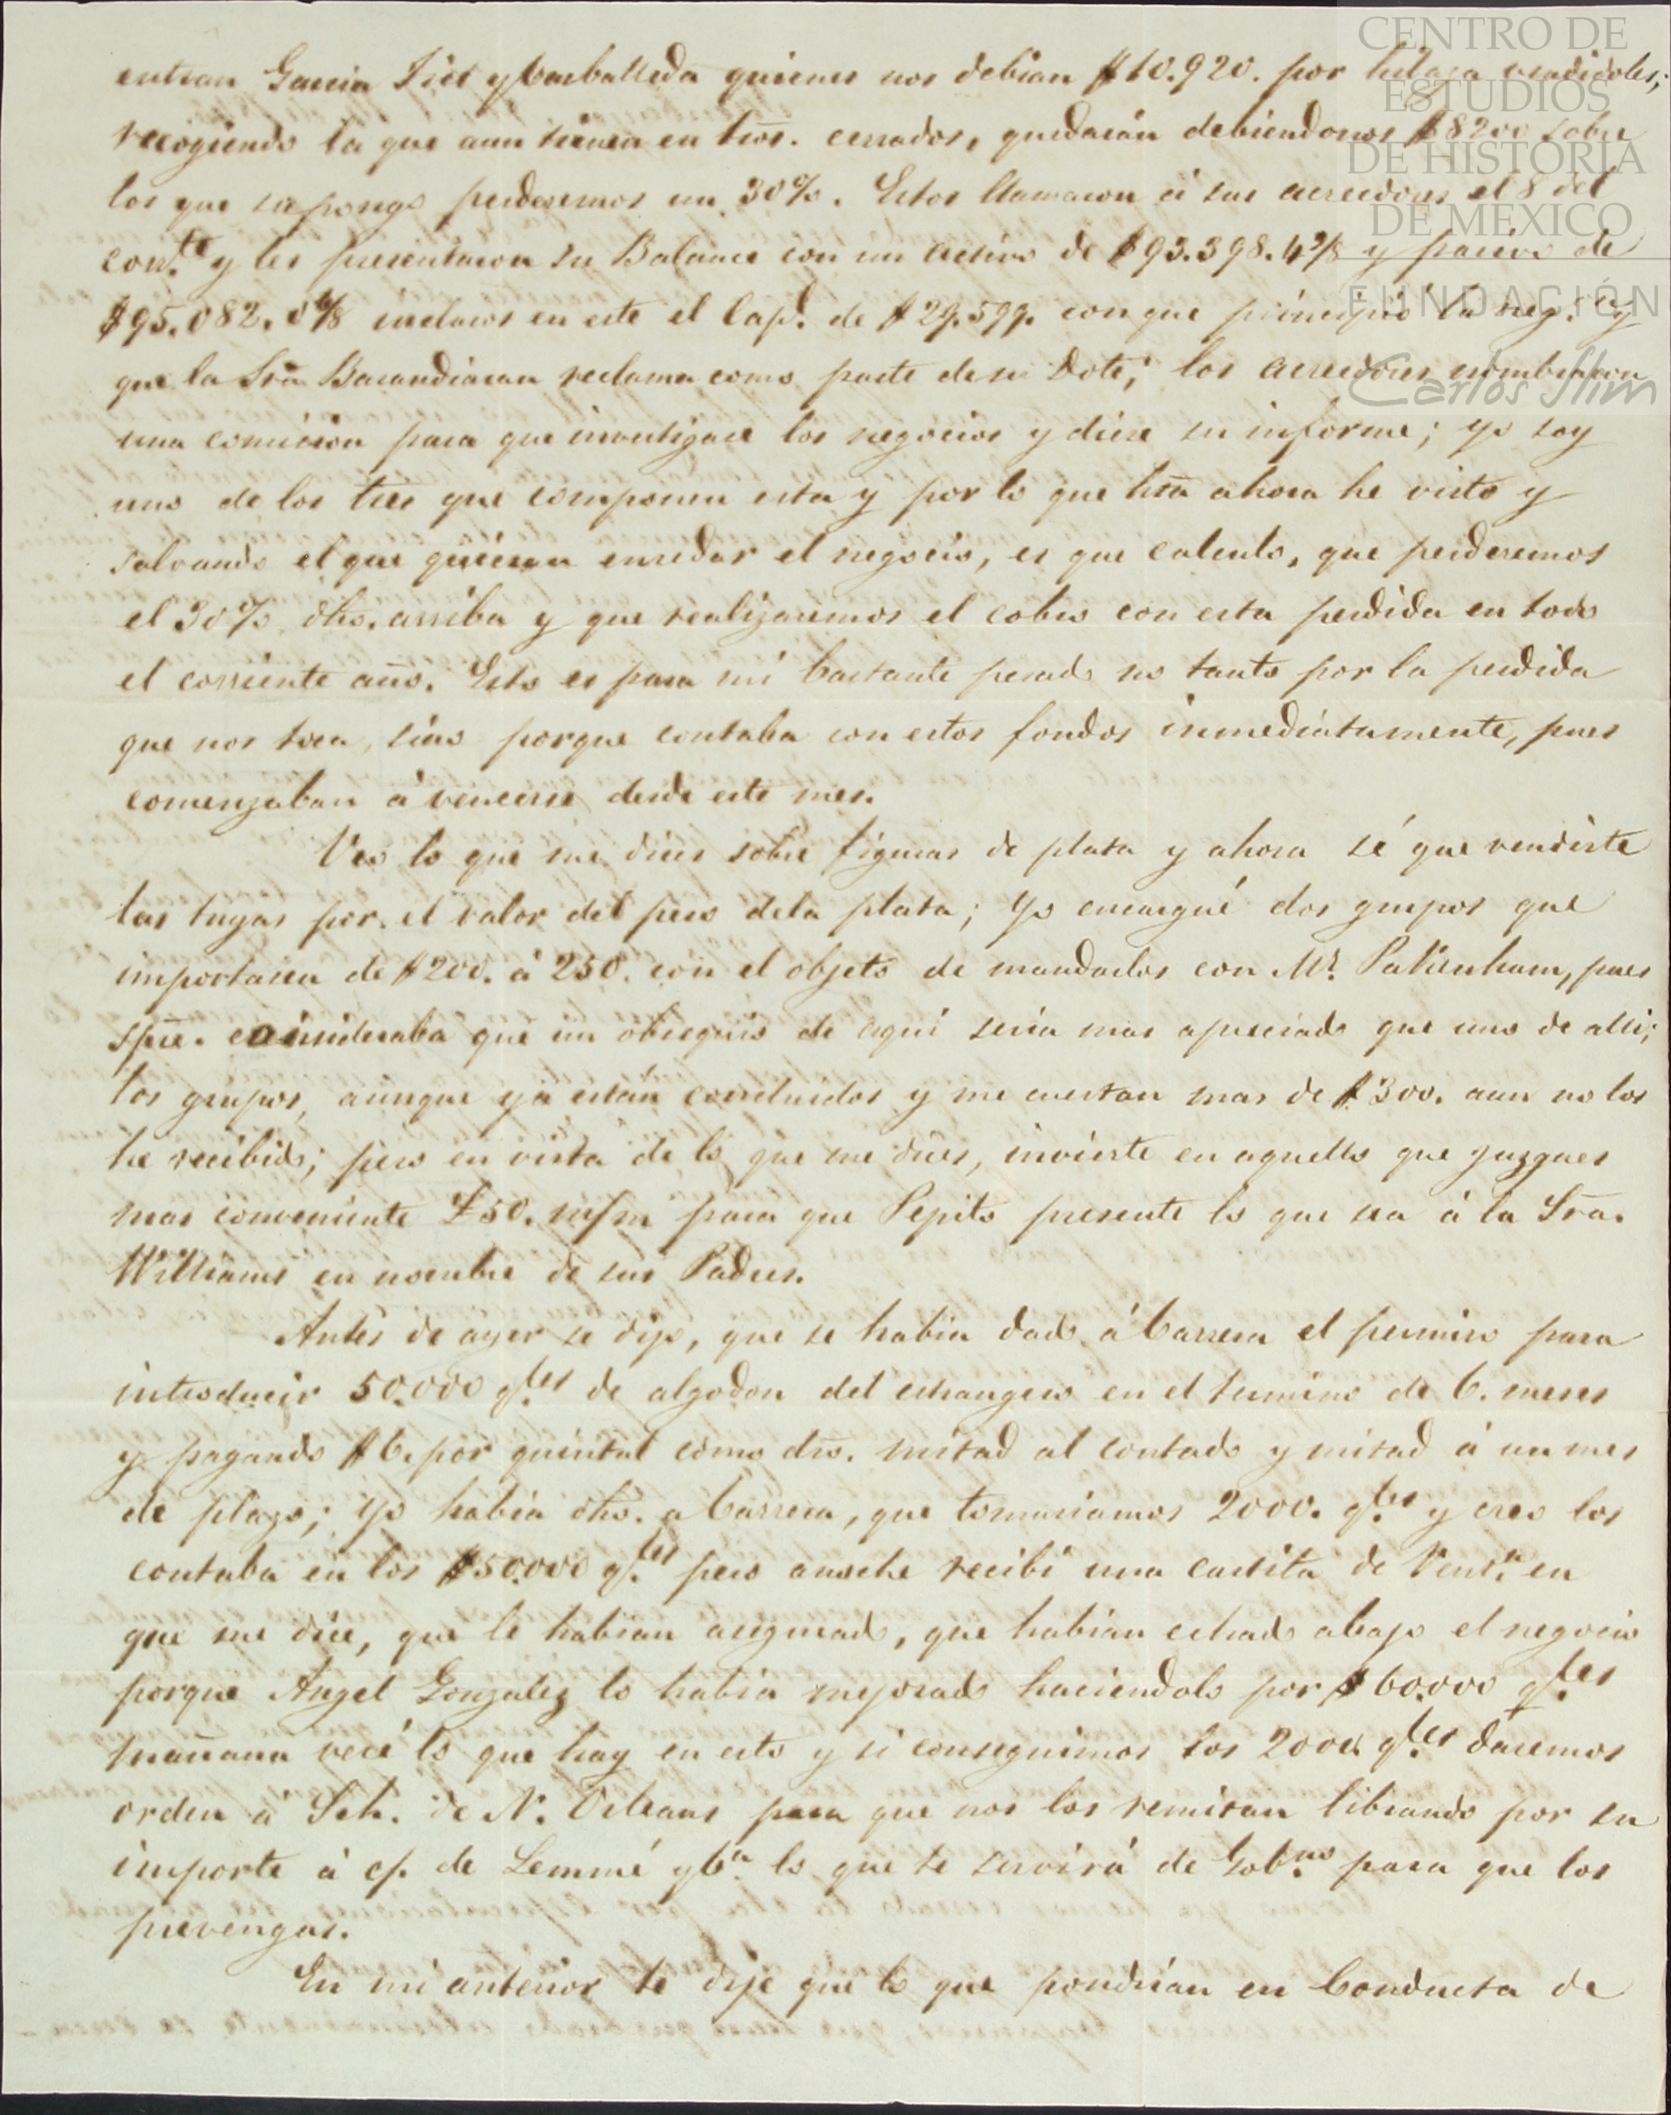 CENTRO DE
ESTUDIOS
DE HISTORIA
DE MEXICO
FUNDACIÓN
Carlos Slim
entran Garcia Frit y Carballeda quienes nos debian $10.920. por hilaza vendidoles;
recogiendo la que aun tienen en tros. cerrados, quedarán debiendonos $8200 sobre
los que supongo perderemos un 30%. Estos llamaron á sus acreedores el 8 del
corrte. y les presentaron su Balance con un activo de $93.398.4 3/8 y pasivo de
$95.082.0 4/8 inclusos en este el Capl. de $29.599. con que principió la negn. y
que la Sra. Barandiaran reclama como parte de su Dote; los acreedores nombraron
una comicion para que investigase los negocios y diese su informe; yo soy
uno de los tres que componen esta y por lo que hta ahora he visto y
salvando el que quieran enredar el negocio, es que calculo, que perderemos
el 30% dho. arriba y que realizaremos el cobro con esta perdida en todo
el corriente año. Esto es para mi bastante pesado no tanto por la perdida
que nos toca, sino porque contaba con estos fondos inmediatamente, pues
comenzaban á vencerse desde este mes.
Veo lo que me dices sobre figuras de plata y ahora sé que vendiste
las tuyas por el valor del peso dela plata; yo encargué dos grupos que
importasen de $200. á 250. con el objeto de mandarlos con Mr. Pakenham, pues
spre. consideraba que un obsequio de aqui seria mas apreciado que uno de alli;
los grupos, aunque ya están concluidos y me cuestan mas de $300. aun no los
he recibido; pero en vista de lo que me dices, invierte en aquello que juzgues
mas conveniente £50. m/m para que Pepito presente lo que sea á la Sra.
Williams en nombre de sus Padres.
Antes de ayer se dijo, que se habia dado á Barrera el permiso para
introducir 50.000 qles. de algodon del estrangero en el termino de 6. meses
y pagando $6. por quintal como dro. mitad al contado y mitad á un mes
de plazo; yo habia dho. a Barrera, que tomariamos 2000. qles. y creo los
contaba en los $50.000 qles. pero anoche recibi una cartita de Venta. en
que me dice, que le habian asegurado, que habian echado abajo el negocio
porque Angel Gonzalez lo habia mejorado haciendolo por $60.000 qles.
mañana veré lo que hay en esto y si conseguimos los 2000. qles. daremos
orden á Sch. de N. Orleans para que nos los remitan librando por su
importe á c/. de Lemmé y Ca. lo que te servirá de Gobno. para que los
prevengas.
En mi anterior te dije que lo que pondrian en Conducta de